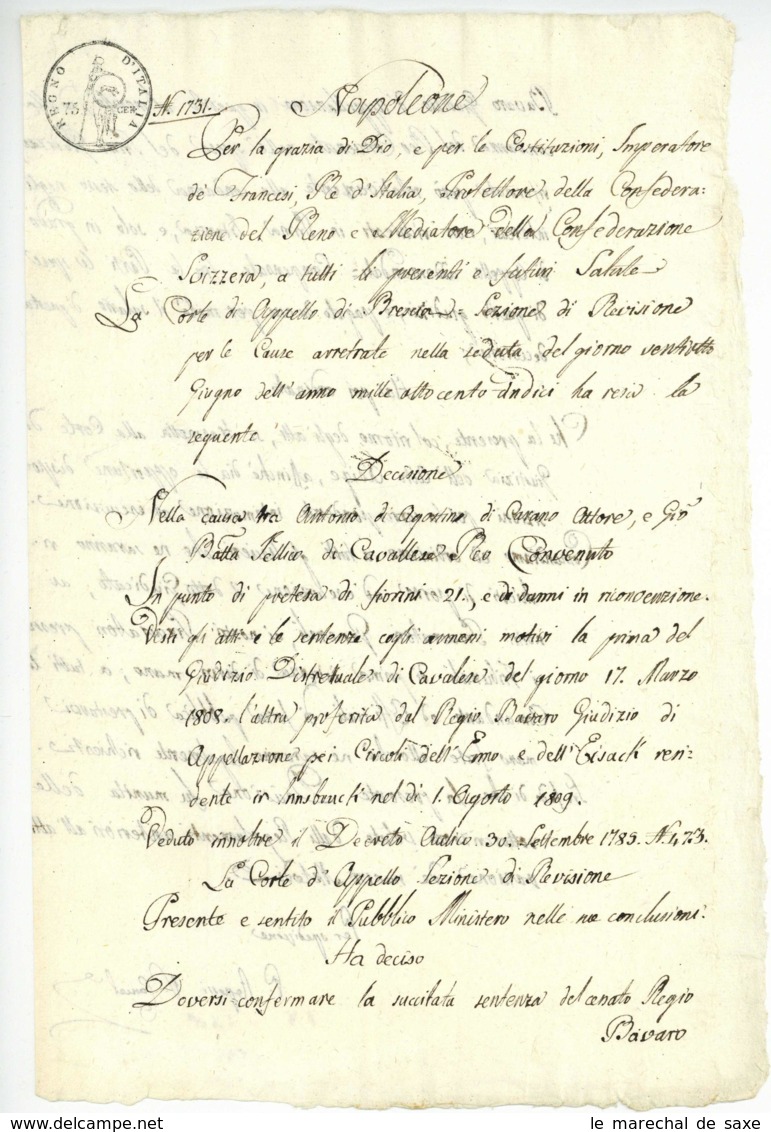 REGNO D'ITALIA
75 CEN.
N. 1731. Napoleone
Per la grazia di Dio, e per le Costituzioni, Imperatore
de' Francesi, Re d'Italia, Protettore della Confedera-
zione del Reno e Mediatore della Confederazione
Svizzera, a tutti li presenti e futuri Salute
La Corte di Appello di Brescia - Sezione di Revisione
per le Cause arretrate nella seduta del giorno ventiotto
Giugno dell'anno mille ottocento undici ha resa la
seguente
Decisione
Nella causa tra Antonio di Agostino di Carano Attore, e Gio
Batta Fellin di Cavalese Reo Convenuto
In punto di pretesa di fiorini 21, e di danni in riconvenzione.
Visti gli atti e le sentenze cogli annessi motivi la prima del
Giudizio Distrettuale di Cavalese del giorno 17. Marzo
1808. l'altra proferita dal Regio Bavaro Giudizio di
Appellazione pei Circoli dell'Emo e dell'Eisack resi-
dente in Innsbruck nel dì 1. Agosto 1809.
Veduto innoltre il Decreto Aulico 30. Settembre 1785. N. 473.
La Corte d'Appello Sezione di Revisione
Presente e sentito il Pubblico Ministero nelle sue conclusioni.
Ha deciso
Doversi confermare la succitata sentenza del cenato Regio
Bavaro
le marechal de saxe